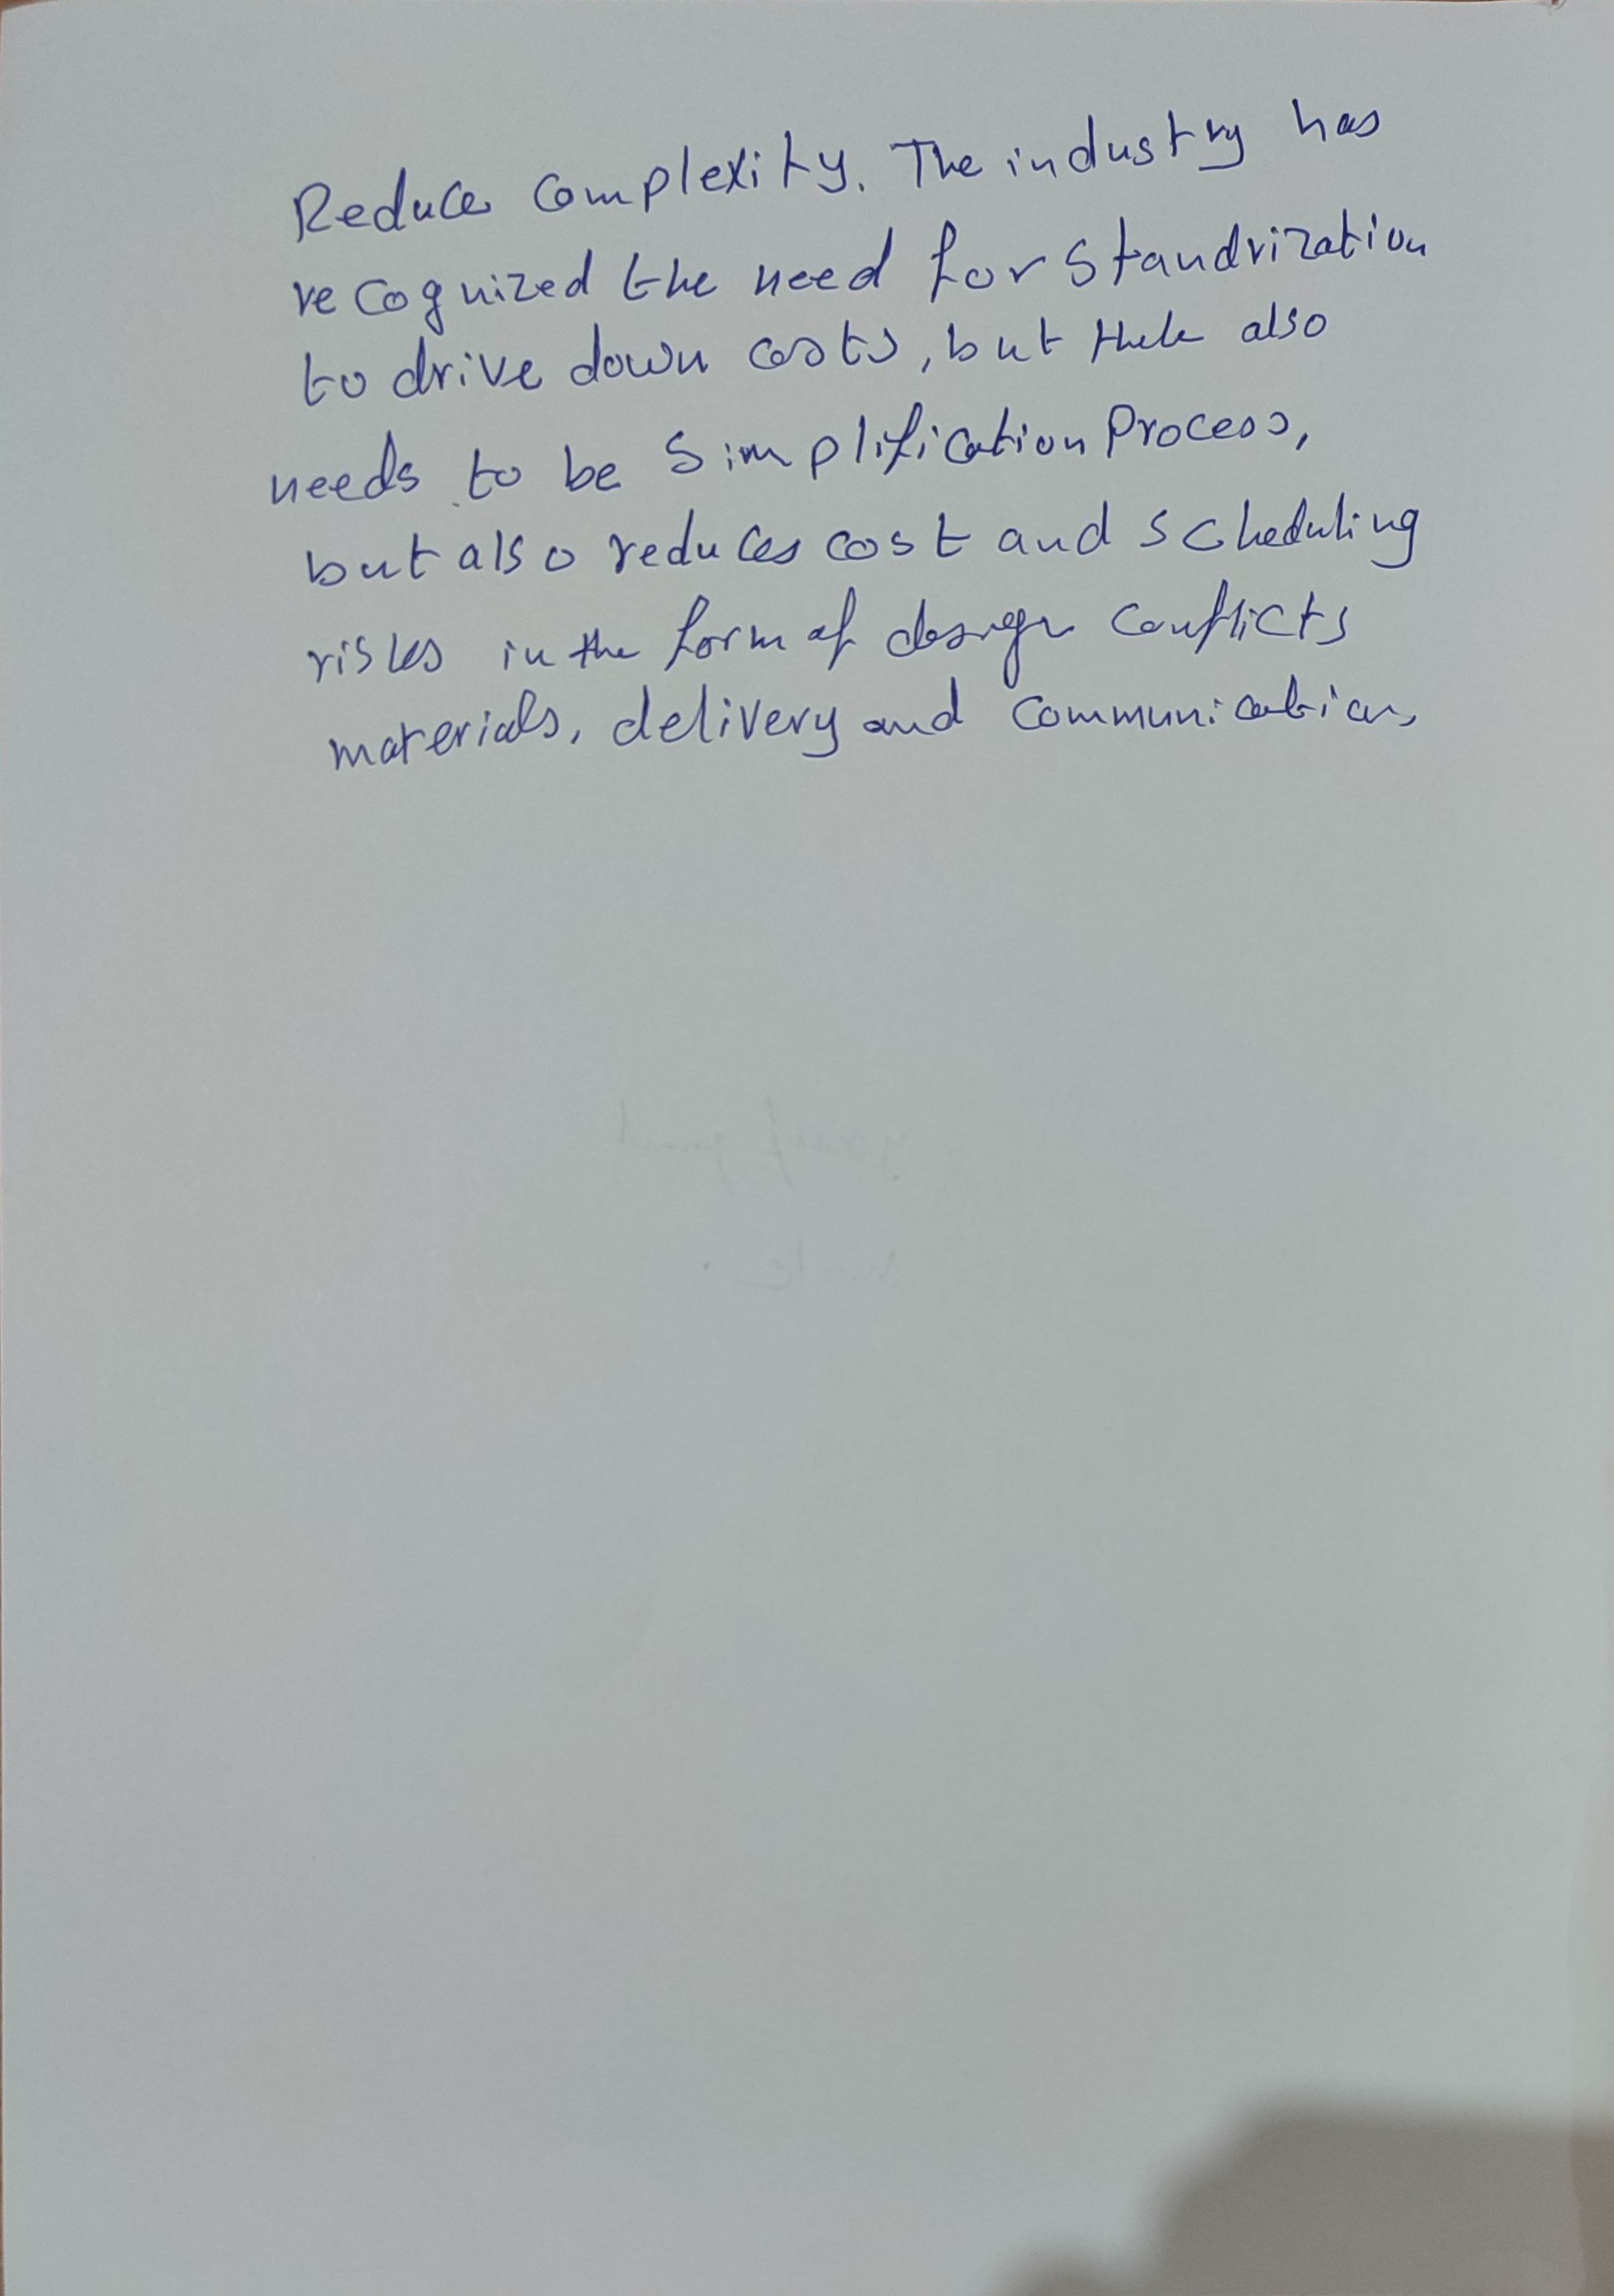 Reduce complexity. The industry has
recognized the need for standrization
to drive down costs, but there also
needs to be simplification Process,
but also reduces cost and scheduling
risks in the form of design conflicts
materials, delivery and communication,